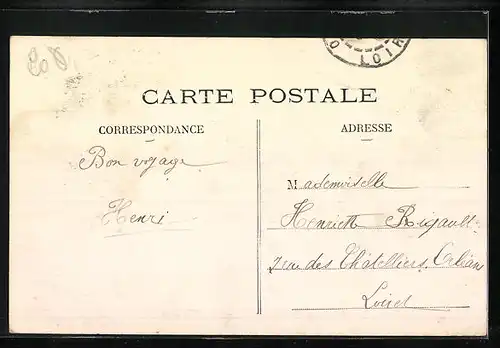 LOIR
CARTE POSTALE
CORRESPONDANCE
ADRESSE
Bon voyage
Henri
Mademoiselle
Rigault
rue des Châtelliers. Orléans
Loiret